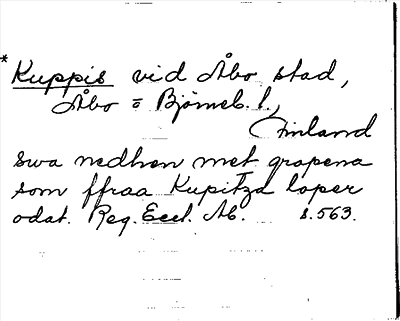 * Kuppis vid Åbo stad,
Åbo o Björneb. l.,
(Finland
swa nedhen met grapena
som ffraa Kupitza loper
odat. Reg. Eccl. Ab. s. 563.